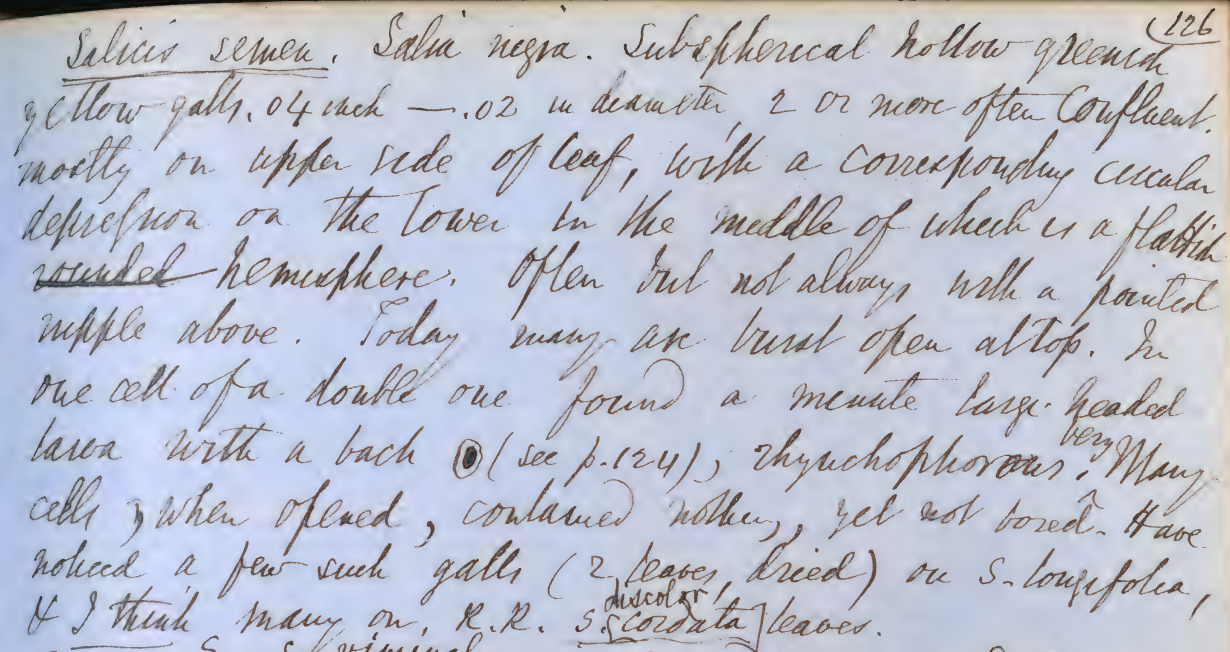 126
Salicis semen. Salix nigra. Subspherical hollow greenish
yellow galls, .04 inch — .02 in diameter, 2 or more often confluent.
mostly on upper side of leaf, with a corresponding circular
depression on the lower in the middle of which is a flattish
rounded hemisphere. Often but not always with a pointed
nipple above. Today many are burst open at top. In
one cell of a double one found a minute large-headed
larva with a back (see p.124), rhynchophorous? Many
very
cells, when opened, contained nothing, yet not bored. Have
noticed a few such galls (2 leaves, dried) on S. longifolia,
discolor,
& I think many on, R.R. S. cordata] leaves.